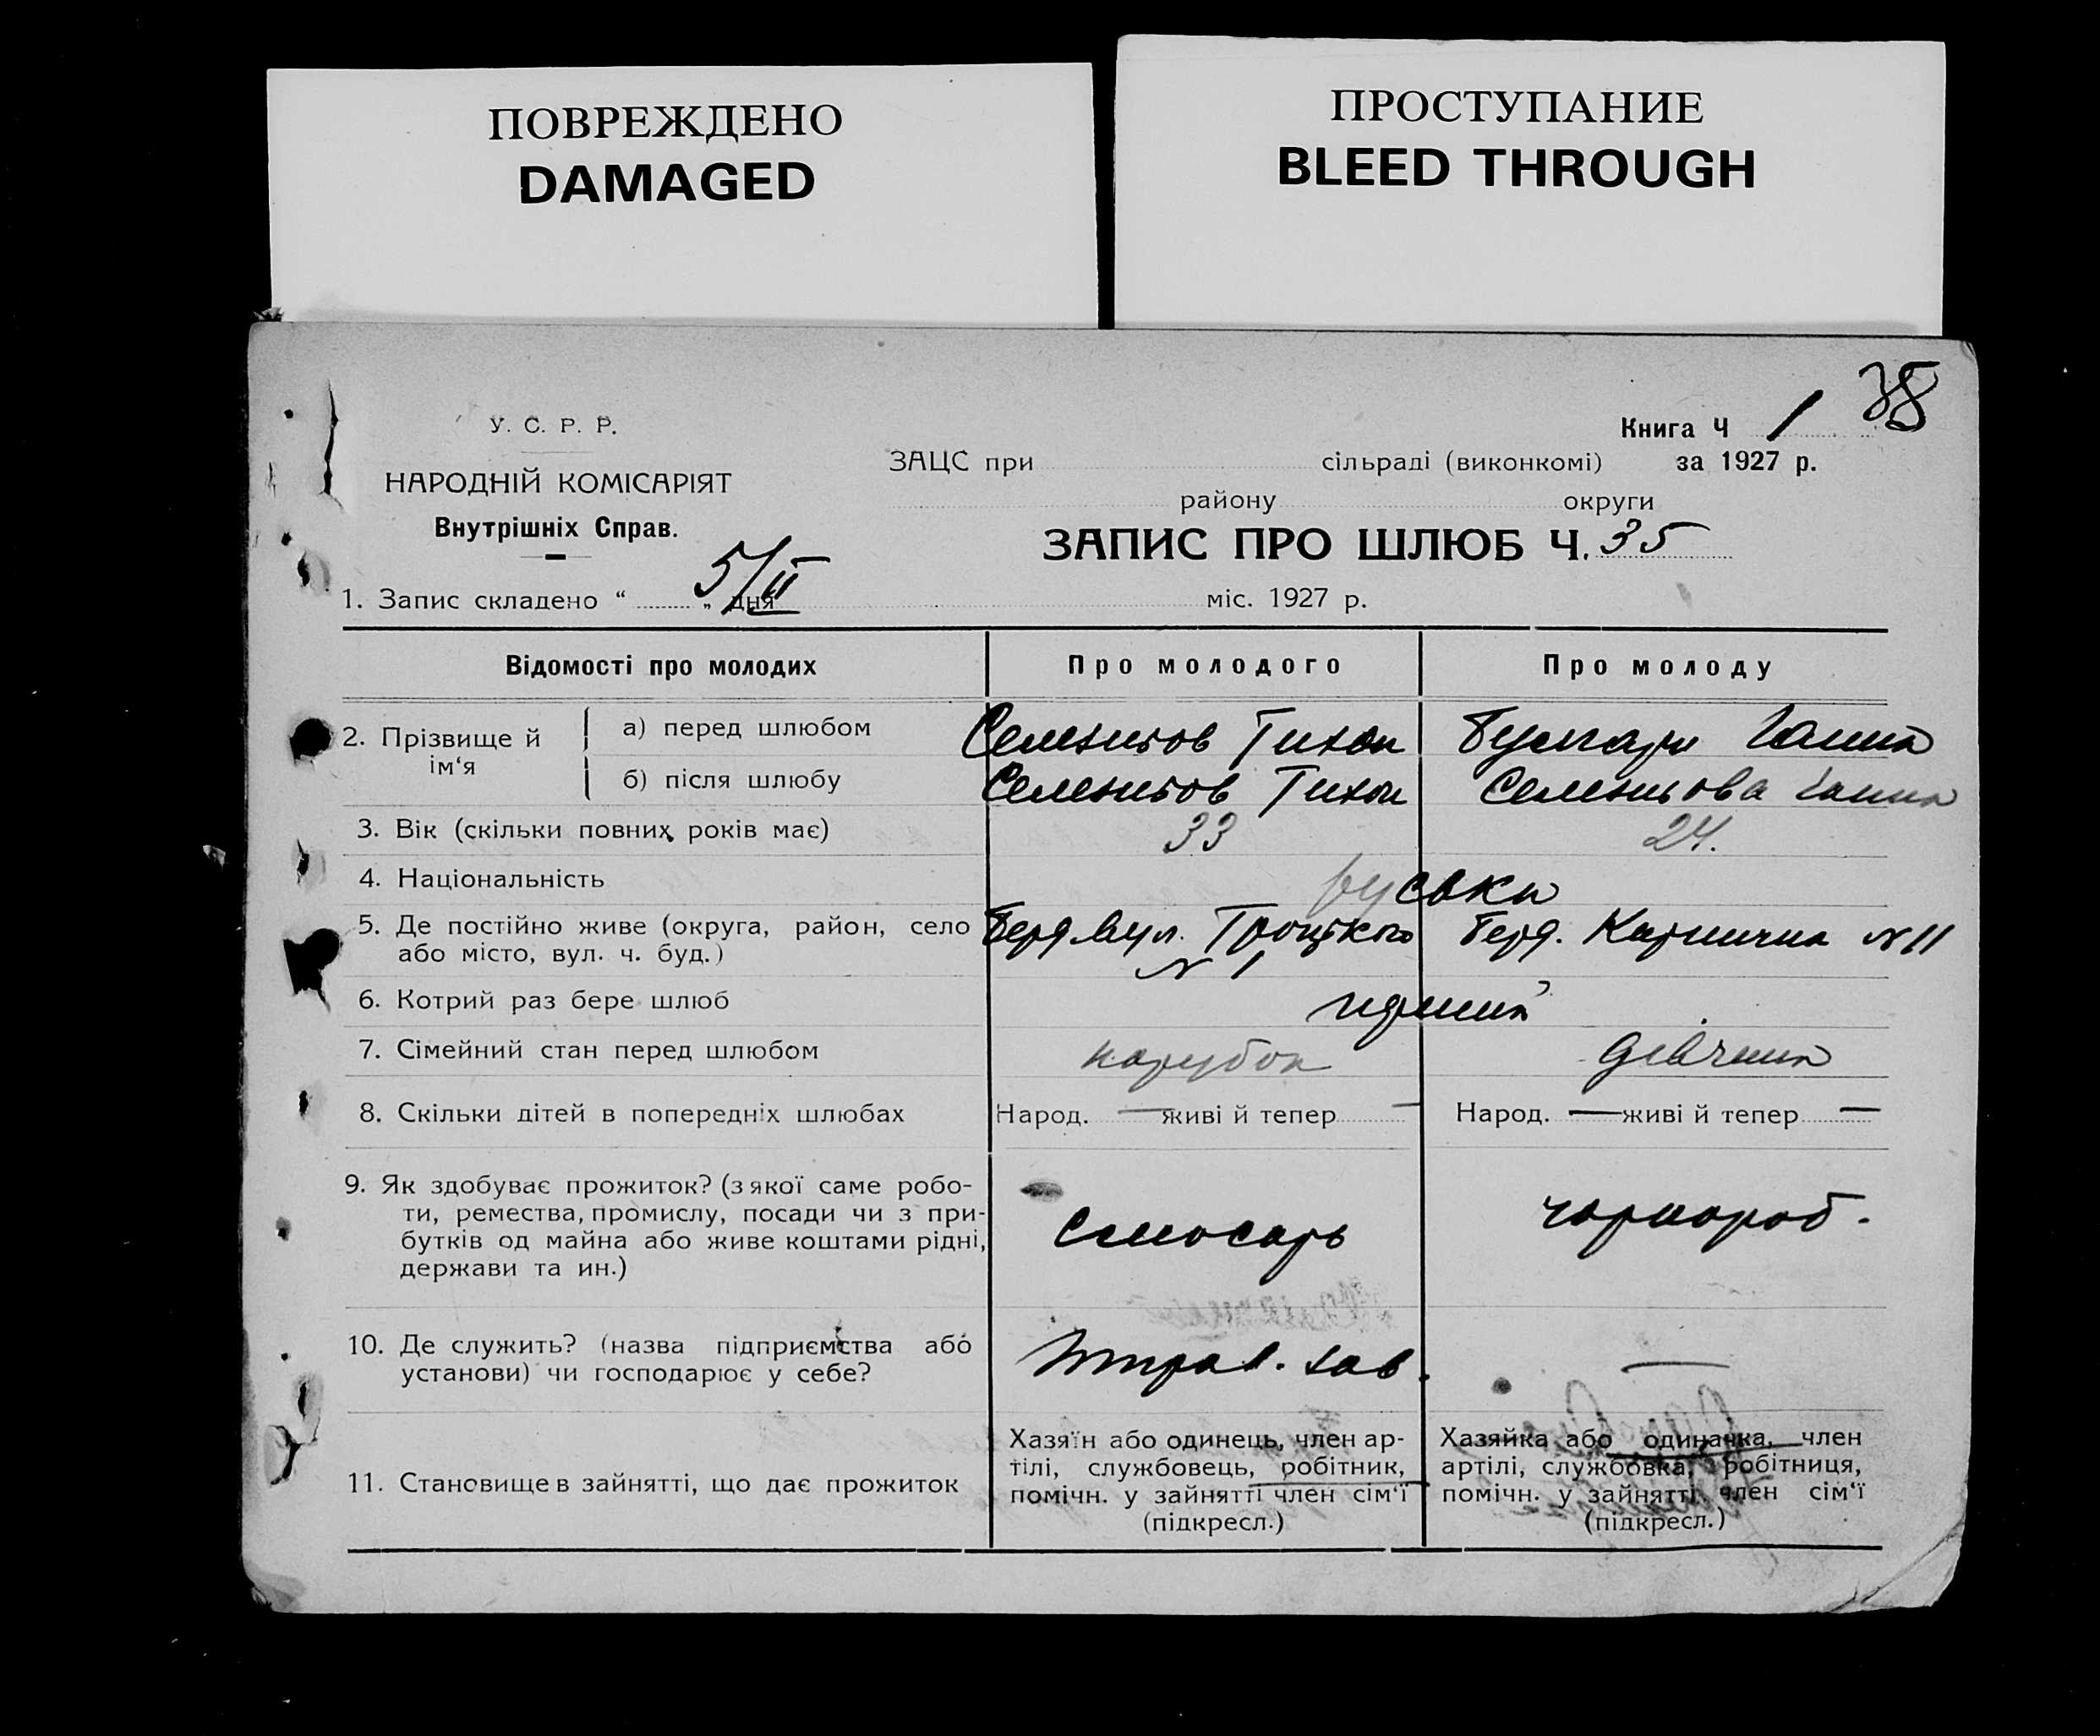 ПОВРЕЖДЕНО
DAMAGED
ПРОСТУПАНИЕ
BLEED THROUGH
38
У. С. Р. Р.
НАРОДНІЙ КОМІСАРІЯТ
Внутрішніх Справ.
Книга Ч 1
ЗАЦС при сільраді (виконкомі) за 1927 р.
району округи
ЗАПИС ПРО ШЛЮБ Ч. 35
1. Запис складено “ 5/II „ дня міс. 1927 р.
Відомості про молодих Про молодого Про молоду
2. Прізвище й ім‘я
а) перед шлюбом Тихон Ганна
б) після шлюбу Тихон Ганна
3. Вік (скільки повних років має) 33 24.
4. Національність руськи
5. Де постійно живе (округа, район, село Берд. вул. Троцького Берд. №11
або місто, вул. ч. буд.) № 1
6. Котрий раз бере шлюб перший
7. Сімейний стан перед шлюбом парубок дівчина
8. Скільки дітей в попередніх шлюбах Народ. — живі й тепер — Народ. — живі й тепер —
9. Як здобуває прожиток? (з якої саме робо-
ти, ремества, промислу, посади чи з при-
бутків од майна або живе коштами рідні,
держави та ин.)
слюсарь чорнороб.
10. Де служить? (назва підприємства або
установи) чи господарює у себе?
зав. —
11. Становище в зайнятті, що дає прожиток
Хазяїн або одинець, член ар-
тілі, службовець, робітник,
помічн. у зайнятті член сім‘ї
(підкресл.)
Хазяйка або одиначка, член
артілі, службовка, робітниця,
помічн. у зайнятті член сім‘ї
(підкресл.)